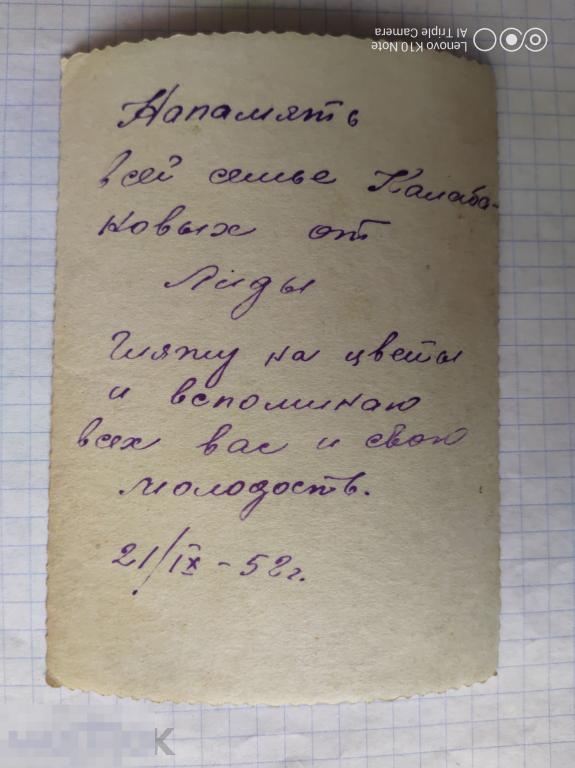 Напамять
всей семье Калаба-
ковых от
Лиды
Гляжу на цветы
и вспоминаю
всех вас и свою
молодость.
21/IX - 52 г.
Lenovo K10 Note
AI Triple Camera